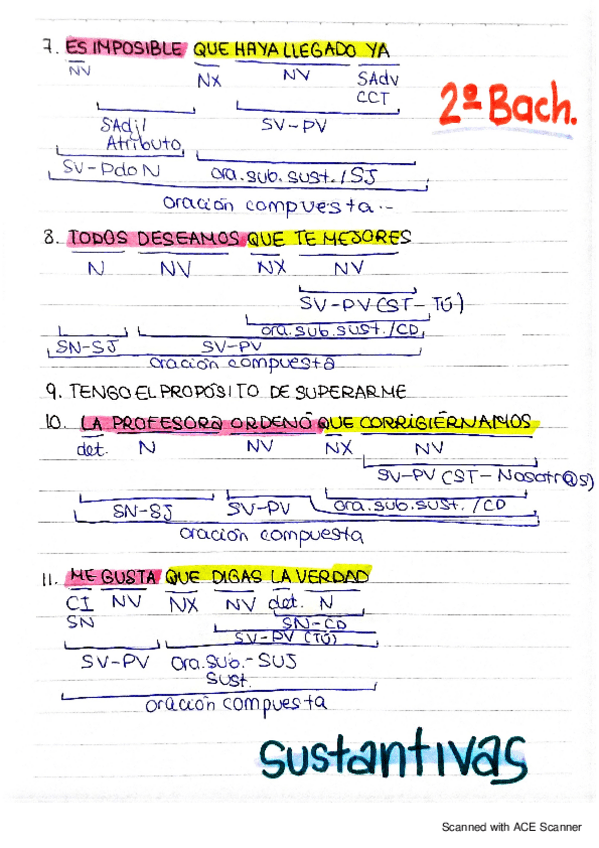 7. ES IMPOSIBLE QUE HAYA LLEGADO YA
NV NX NV SAdv
CCT
2º Bach.
SAdj/ SV-PV
Atributo
SV-Pdo N ora.sub.sust./SJ
oración compuesta.-
8. TODOS DESEAMOS QUE TE MEJORES
N NV NX NV
SV-PV (ST-TÚ)
ora.sub.sust./CD
SN-SJ SV-PV
oración compuesta
9. TENGO EL PROPÓSITO DE SUPERARME
10. LA PROFESORA ORDENÓ QUE CORRIGIÉRNAMOS
det. N NV NX NV
SV-PV (ST-Nosotr@s)
SN-SJ SV-PV ora.sub.sust./CD
oración compuesta
11. ME GUSTA QUE DIGAS LA VERDAD
CI NV NX NV det. N
SN SN-CD
SV-PV (TÚ)
SV-PV Ora.Sub.-SUJ
Sust.
oración compuesta
sustantivas
Scanned with ACE Scanner